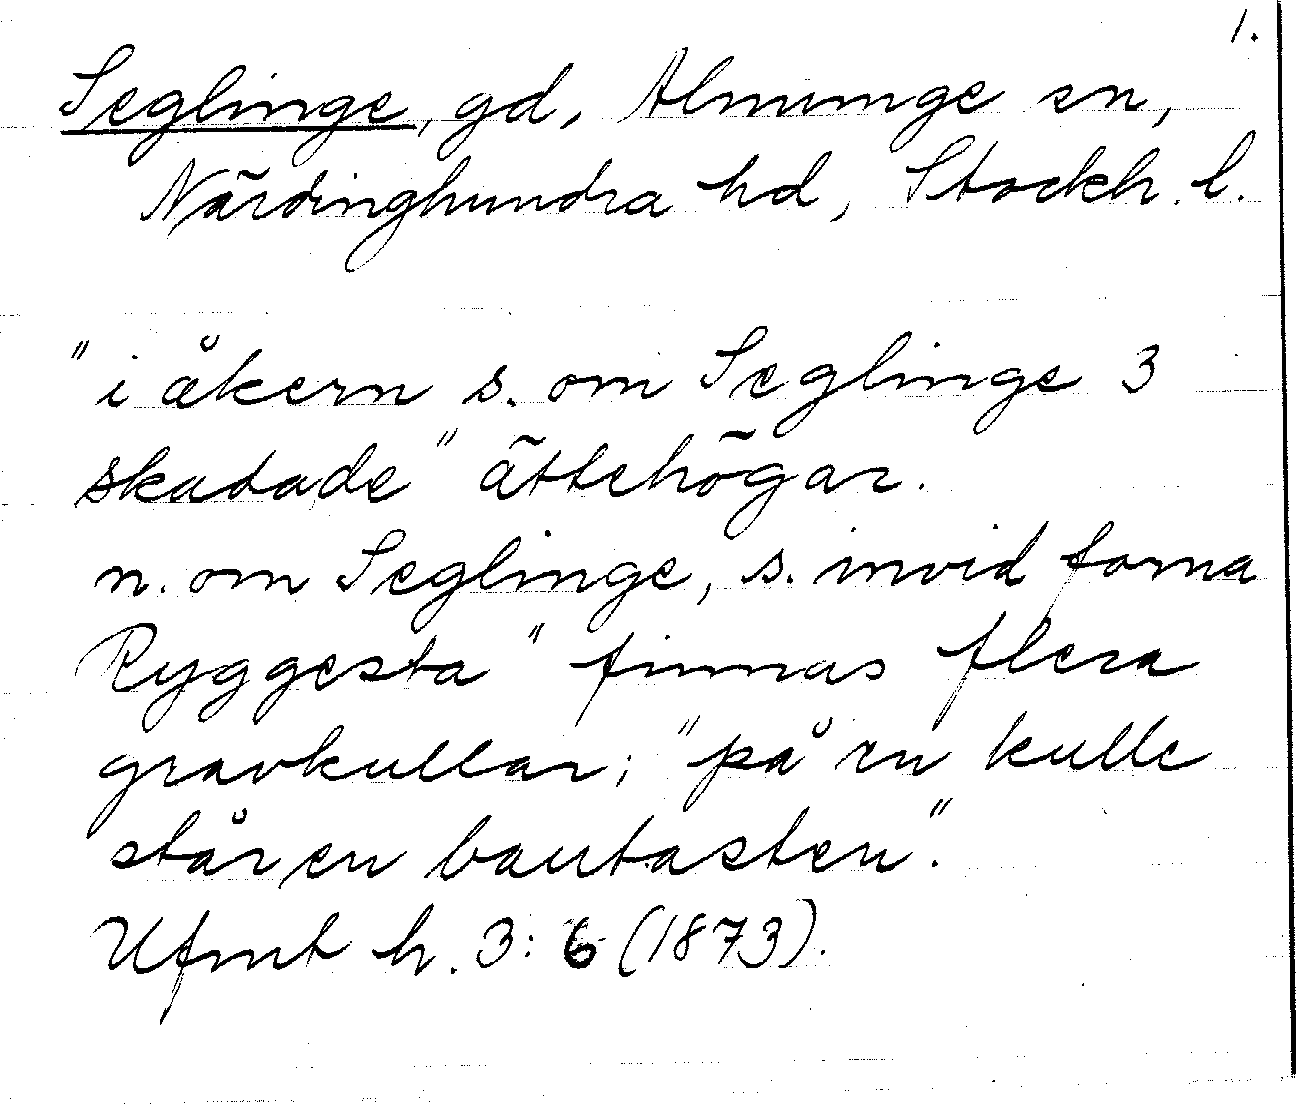 1.
Seglinge, gd, Almunge sn,
Närdinghundra hd, Stockh. l.
"i åkern s. om Seglinge 3
skadade" ättehögar.
n. om Seglinge, s. invid forna
Ryggesta" finnas flera
gravkullar; "på en kulle
står en bautasten."
Ufmt h. 3:6 (1873).